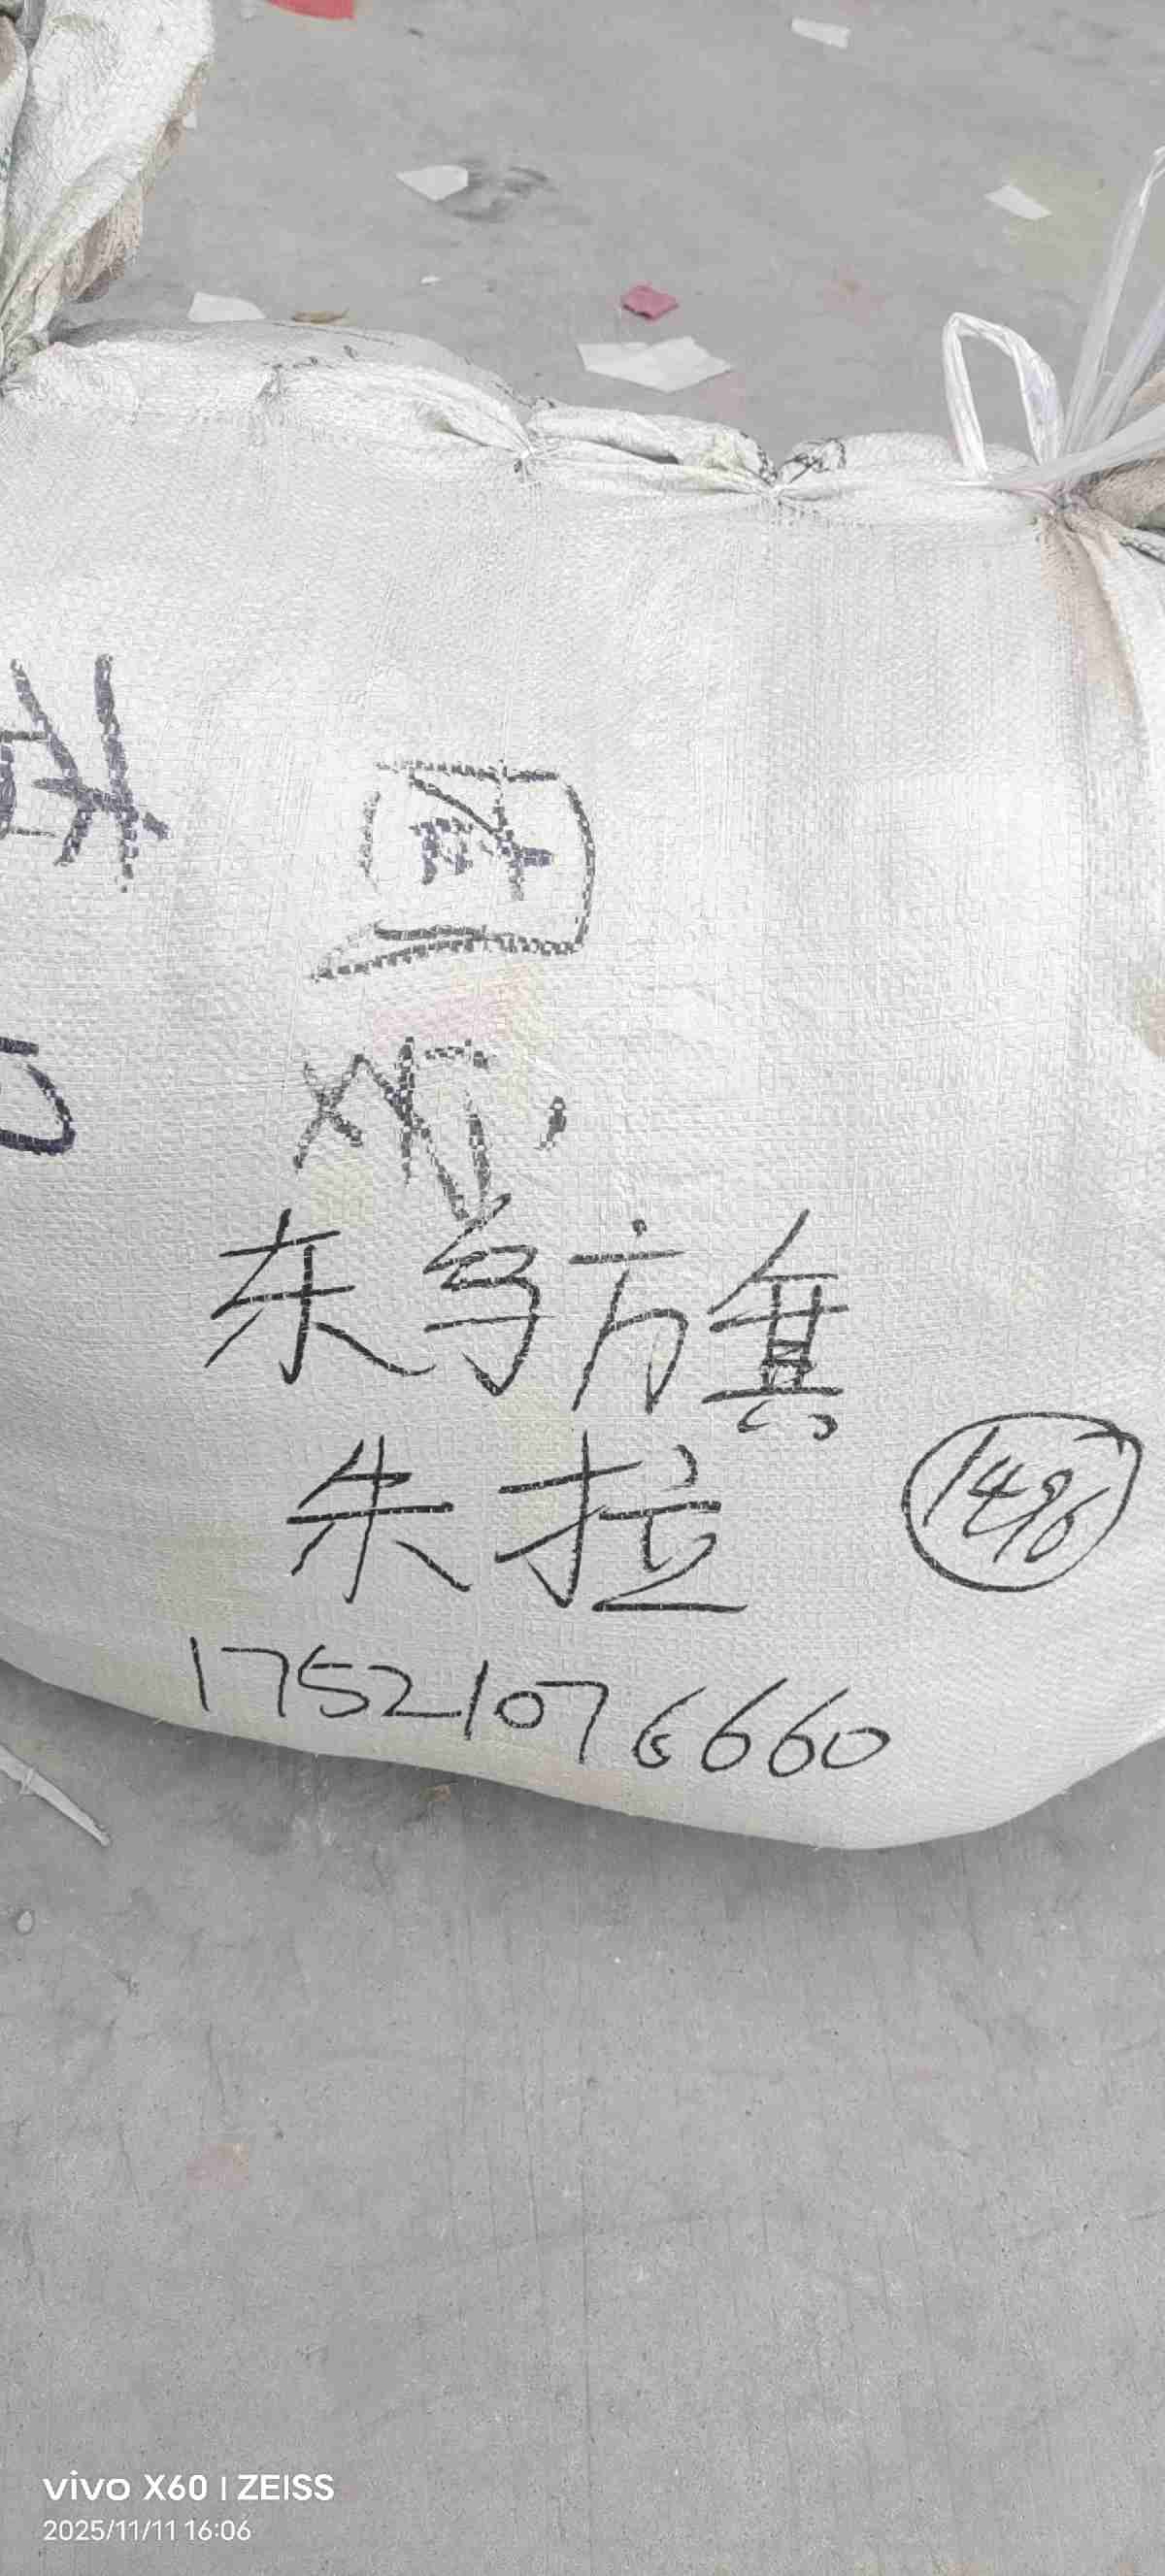 东乌方旗
朱拉
1496
17521076660
vivo X60 | ZEISS
2025/11/11 16:06